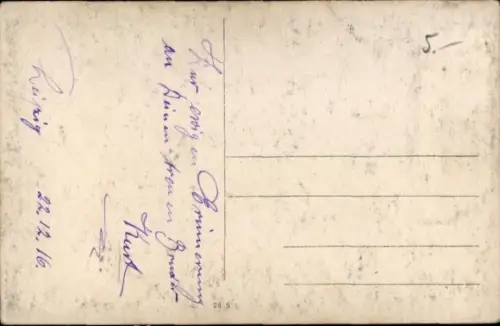 Zur ewigen Erinnerung
an Deinen treuen Bruder
Kurt
Leipzig 22.12.16.
5.-